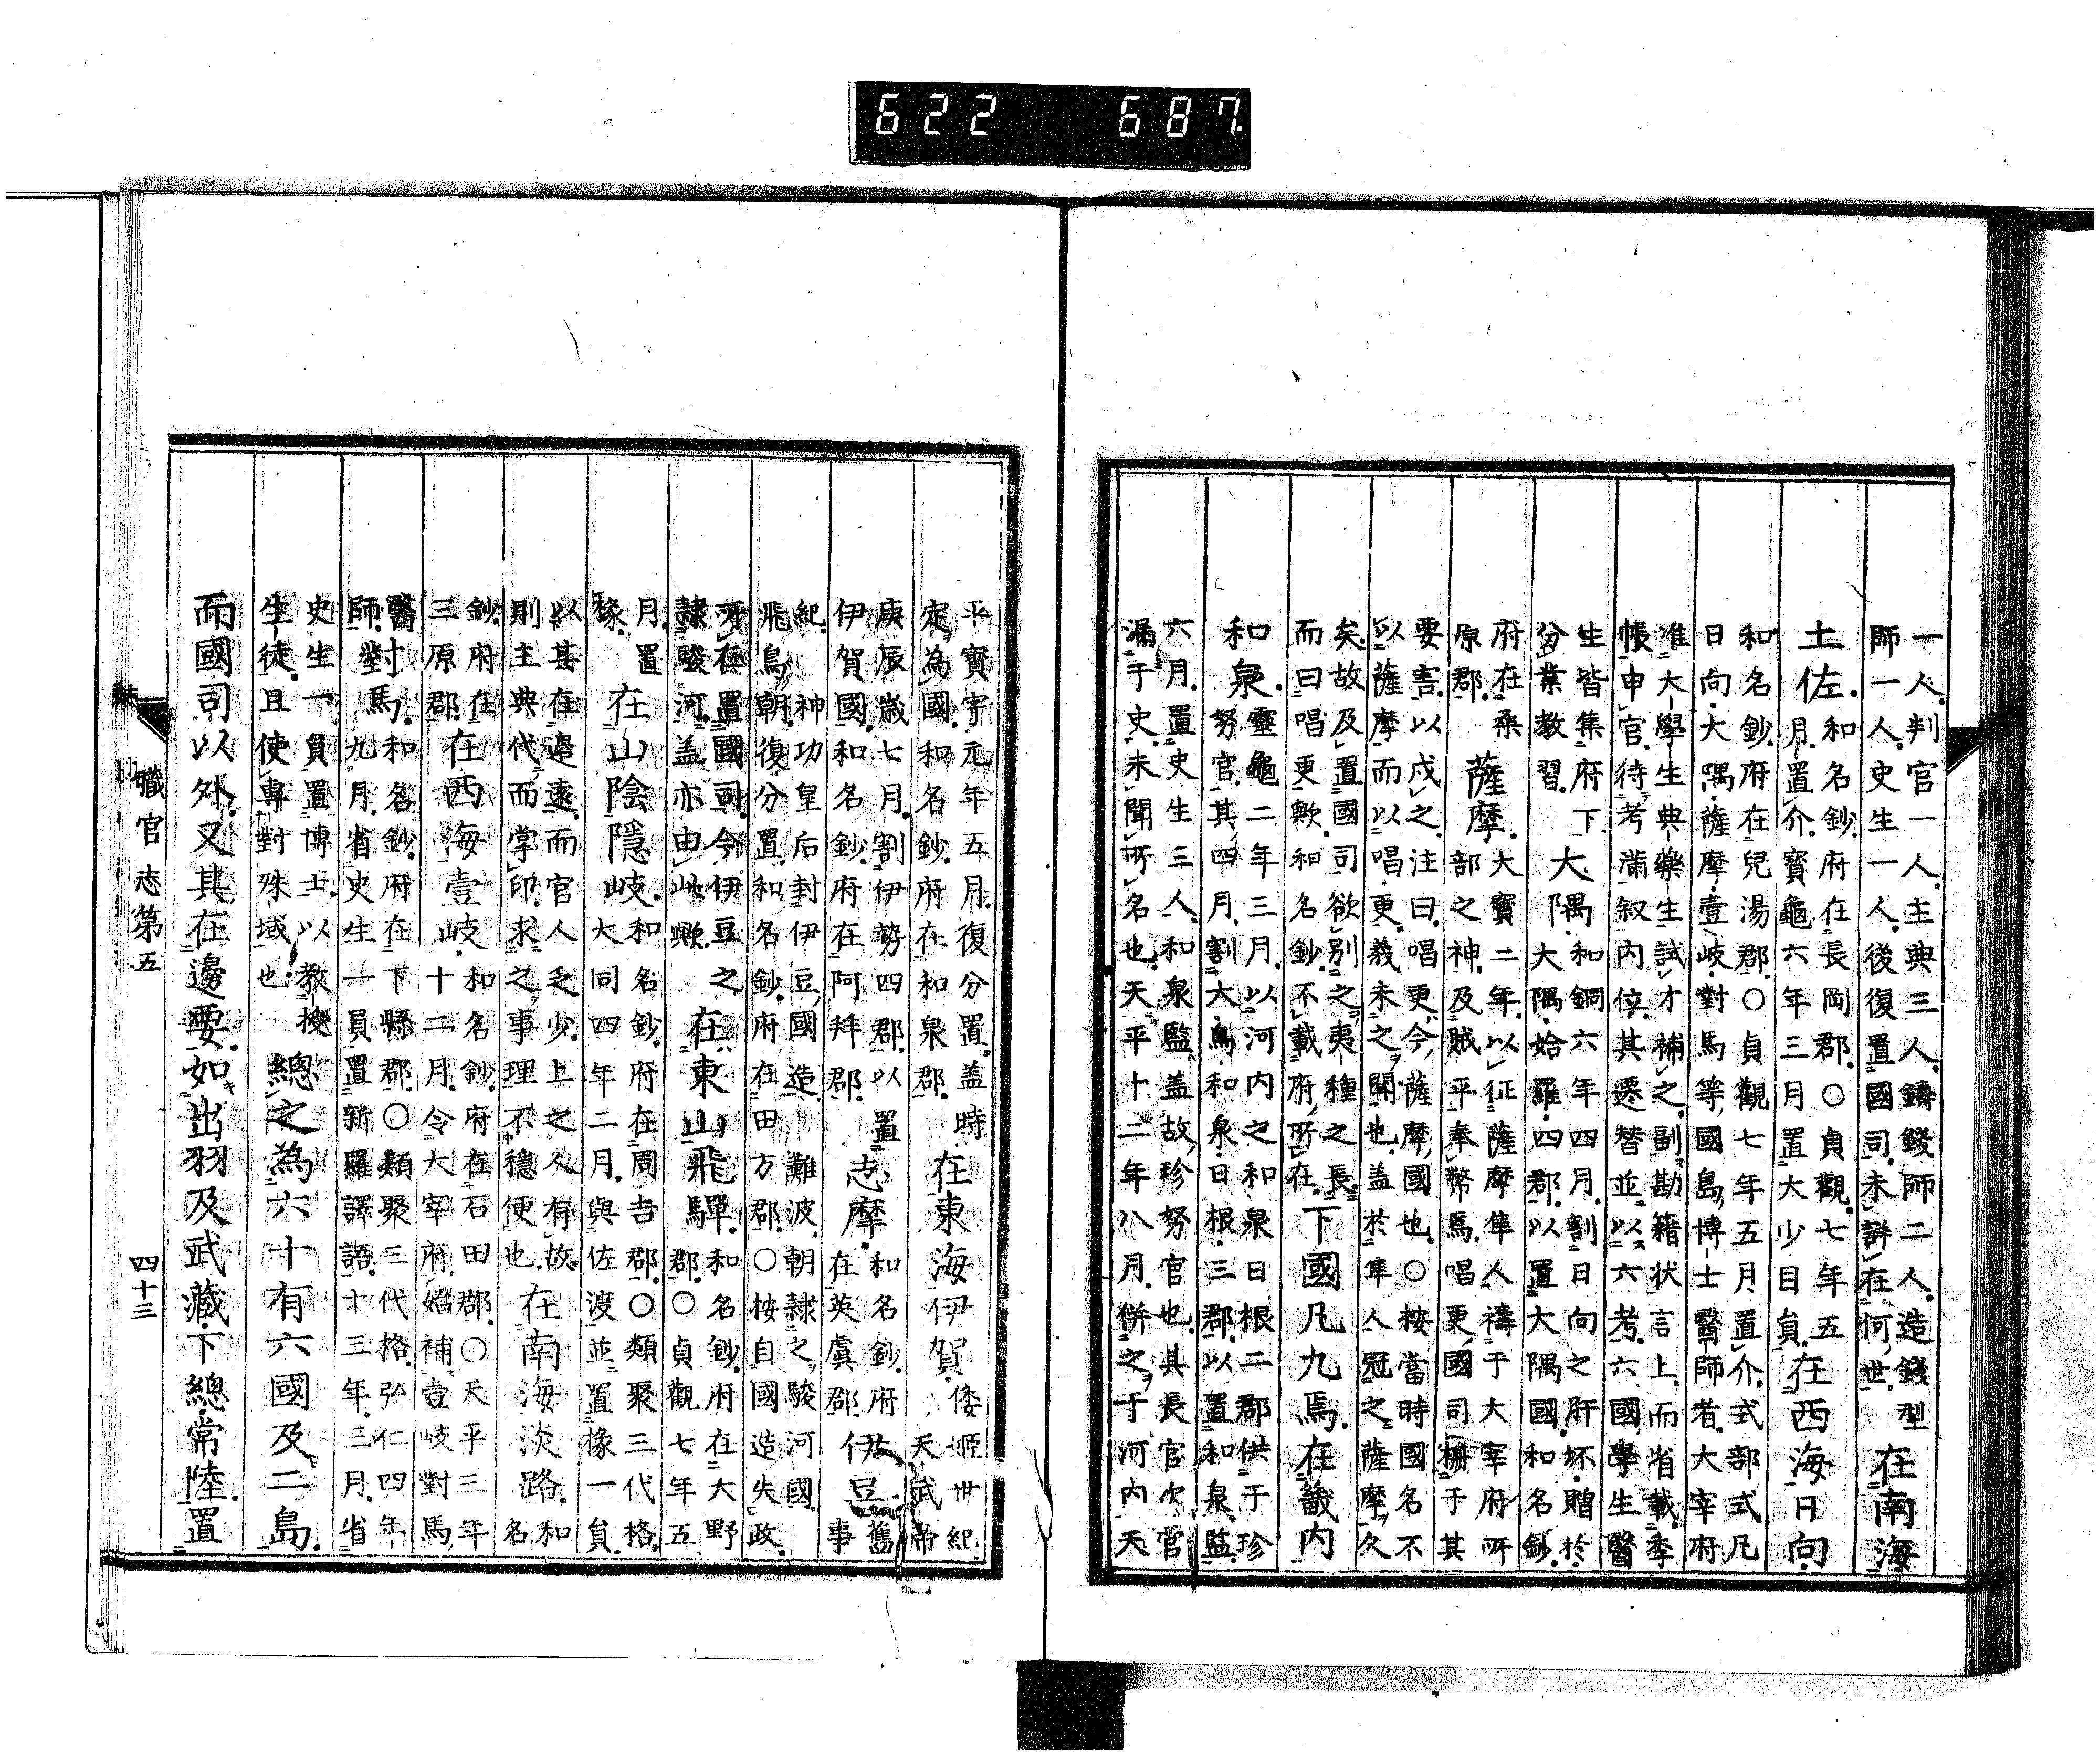 一人。判官一人。主典三人。鑄錢師二人。造錢型
師一人。史生一人。後復置國司。未詳在何世。
在南海
土佐。
和名鈔。府在長岡郡。〇貞觀七年五
月。置介。寶龜六年三月置大少目員。
在西海日向。
和名鈔。府在兒湯郡。〇貞觀七年五月。置介。式部式凡
日向。大隅。薩摩。壹岐。對馬等國島博士醫師者。大宰府
准大學生典藥生試才補之。副勘籍状言上。而省載季
帳申官。待考滿叙内位。其遷替並以六考。六國學生醫
生皆集府下
分業教習。
大隅。
和銅六年四月。割日向之肝坏。贈於
大隅。姶羅。四郡。以置大隅國。和名鈔。
府在桑
原郡。
薩摩。
大寶二年。以征薩摩隼人禱于大宰府所
部之神。及賊平奉幣焉。唱更國司柵于其
要害。以戍之。注曰。唱更。今薩摩國也。〇按當時國名不
以薩摩而以唱更。義未之聞也。盖於隼人冠之薩摩久
矣。故及置國司欲別之夷種之長。
而曰唱更歟。和名鈔。不載府所在。
下國凡九焉。在畿内
和泉。
靈龜二年三月。以河内之和泉。日根二郡供于珍
努官。其四月。割大鳥。和泉。日根。三郡。以置和泉監。
六月。置史生三人。和泉監盖故珍努官也。其長官次官
漏于史。未聞所名也。天平十二年八月。併之于河内天
平寶字元年五月。復分置。盖時
定為國。和名鈔。府在和泉郡。
在東海伊賀。
倭姬世紀
天武帝
庚辰歳七月。割伊勢四郡。以置
伊賀國。和名鈔。府在阿拜郡。
志摩。
和名鈔。府
在英虞郡。
伊豆。
舊
事
紀。神功皇后封伊豆國造。難波朝隷之駿河國。
飛鳥朝。復分置。和名鈔。府在田方郡。〇按自國造失政。
所在置國司。今伊豆之
隷駿河。盖亦由此歟。
在東山飛驒。
和名鈔。府在大野
郡。〇貞觀七年五
月。置
掾。
在山陰隱岐。
和名鈔。府在周吉郡。〇類聚三代格。
大同四年二月。與佐渡並置掾一員。
以其在邉遠。而官人乏少。上之人有故。
則主典代而掌印。求之事理不穩便也。
在南海淡路。
和
名
鈔。府在
三原郡。
在西海壹岐。
和名鈔。府在石田郡。〇天平三年
十二月。令大宰府。始補壹岐對馬
醫
師。
對馬。
和名鈔。府在下縣郡。〇類聚三代格。弘仁四年
九月。省史生一員置新羅譯語。十三年。三月。省
史生一員置博士。以教授
生徒。且使專對殊域也。
總之為六十有六國及二島。
而國司以外。又其在邊要。如出羽及武藏。下總。常陸。置
職官志第五
四十三
622 687.